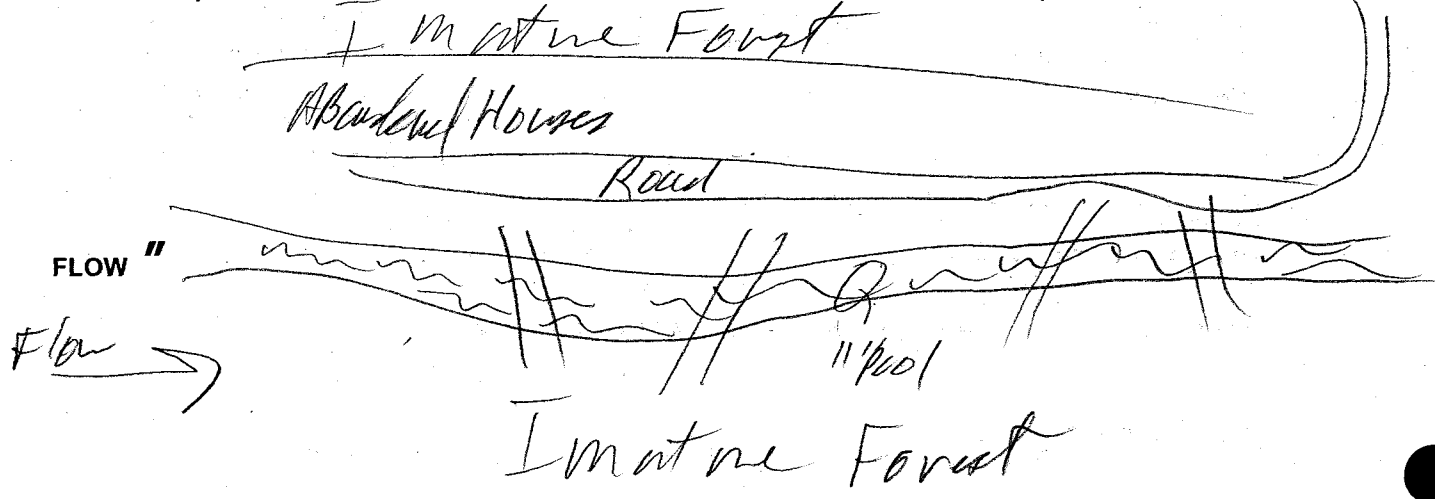 Imature Forest
Abandened Houses
Road
FLOW "
Flow
11" Pool
Imature Forest